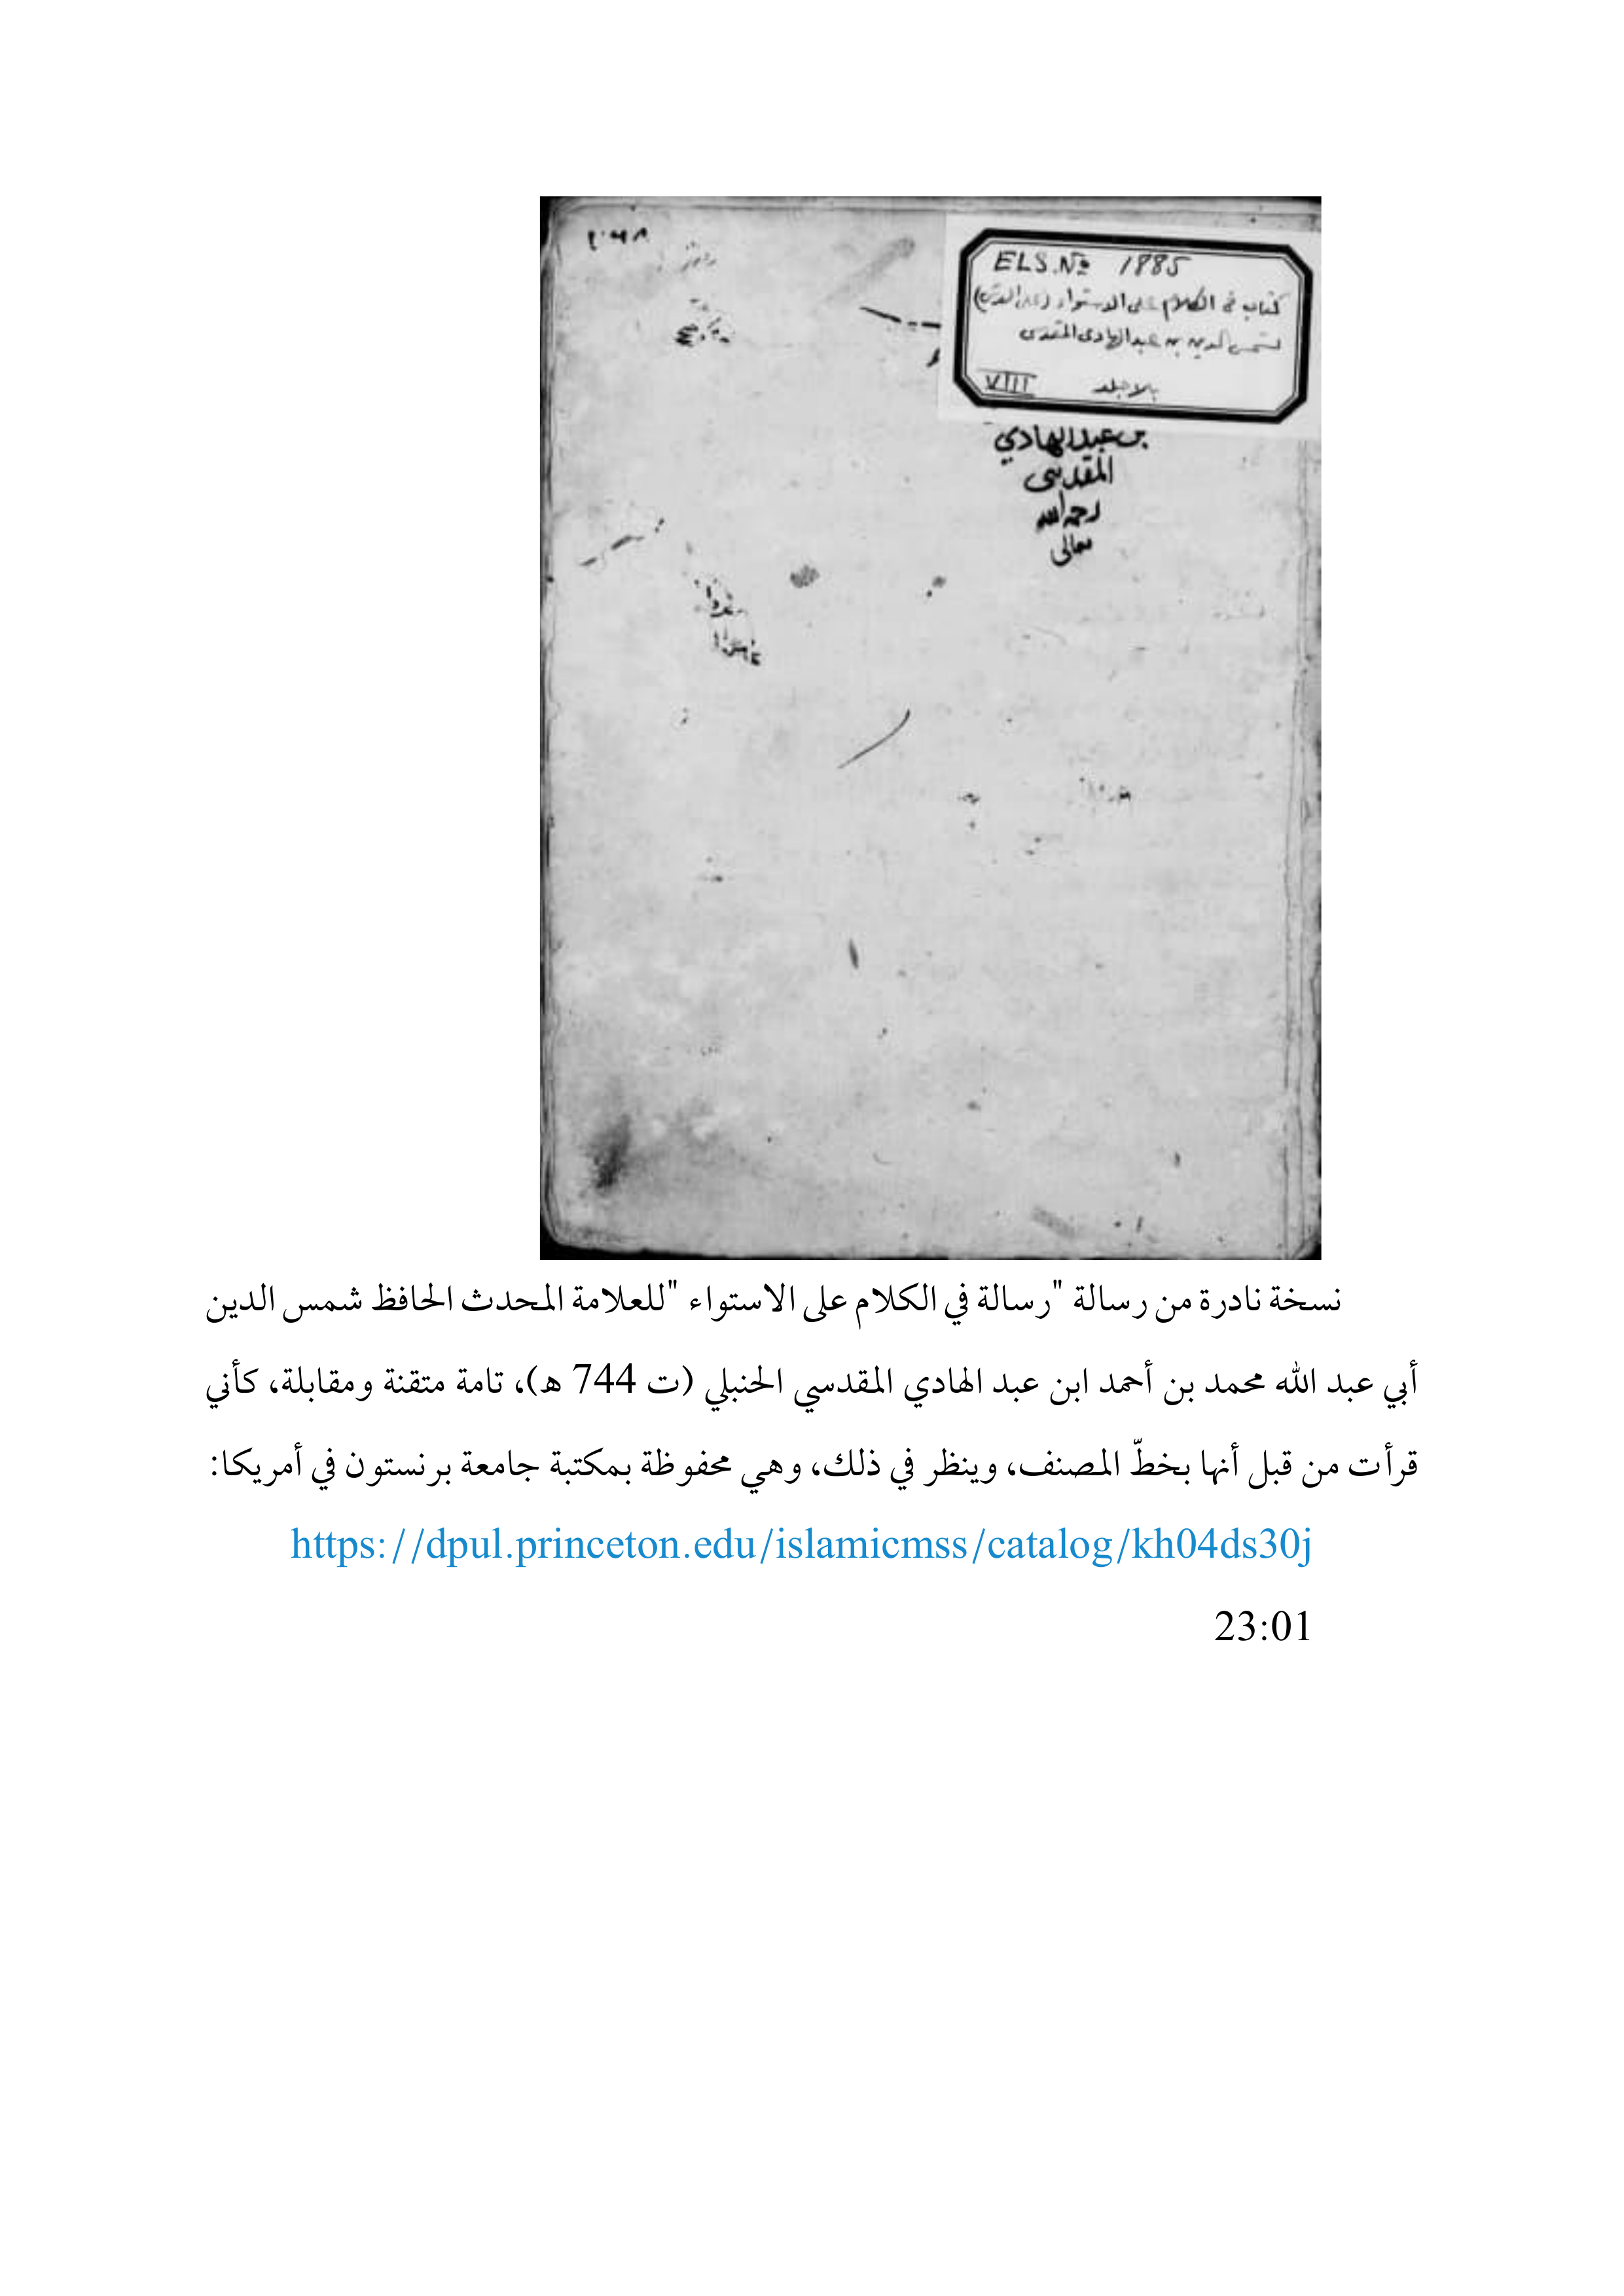 ELS. No 1885
كتاب في الكلام على الاستواء (على العرش)
لشمس الدين بن عبد الهادي المقدسي
VIII بلا جلد
بن عبد الهادي
المقدسي
رحمه الله
تعالى
نسخة نادرة من رسالة "رسالة في الكلام على الاستواء "للعلامة المحدث الحافظ شمس الدين
أبي عبد الله محمد بن أحمد ابن عبد الهادي المقدسي الحنبلي (ت 744 ه)، تامة متقنة ومقابلة، كأني
قرأت من قبل أنها بخطّ المصنف، وينظر في ذلك، وهي محفوظة بمكتبة جامعة برنستون في أمريكا:
https://dpul.princeton.edu/islamicmss/catalog/kh04ds30j
23:01